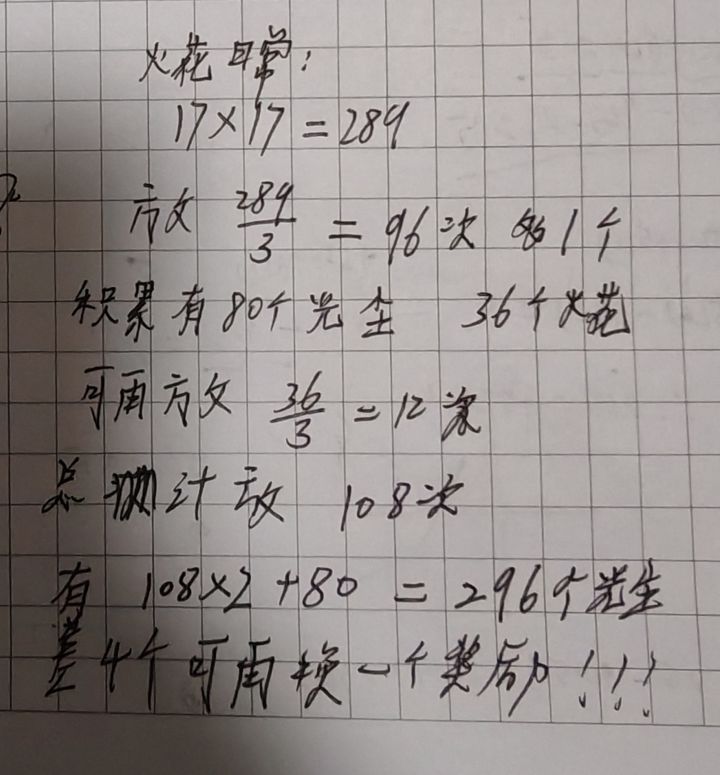 火花日常:
17×17=289
方文 289/3 = 96次 多1个
积累有80个光尘 36个火花
可再方文 36/3 = 12次
总 计 方文 108次
有 108×2+80 = 296个光尘
差4个可再换一个奖励!!!